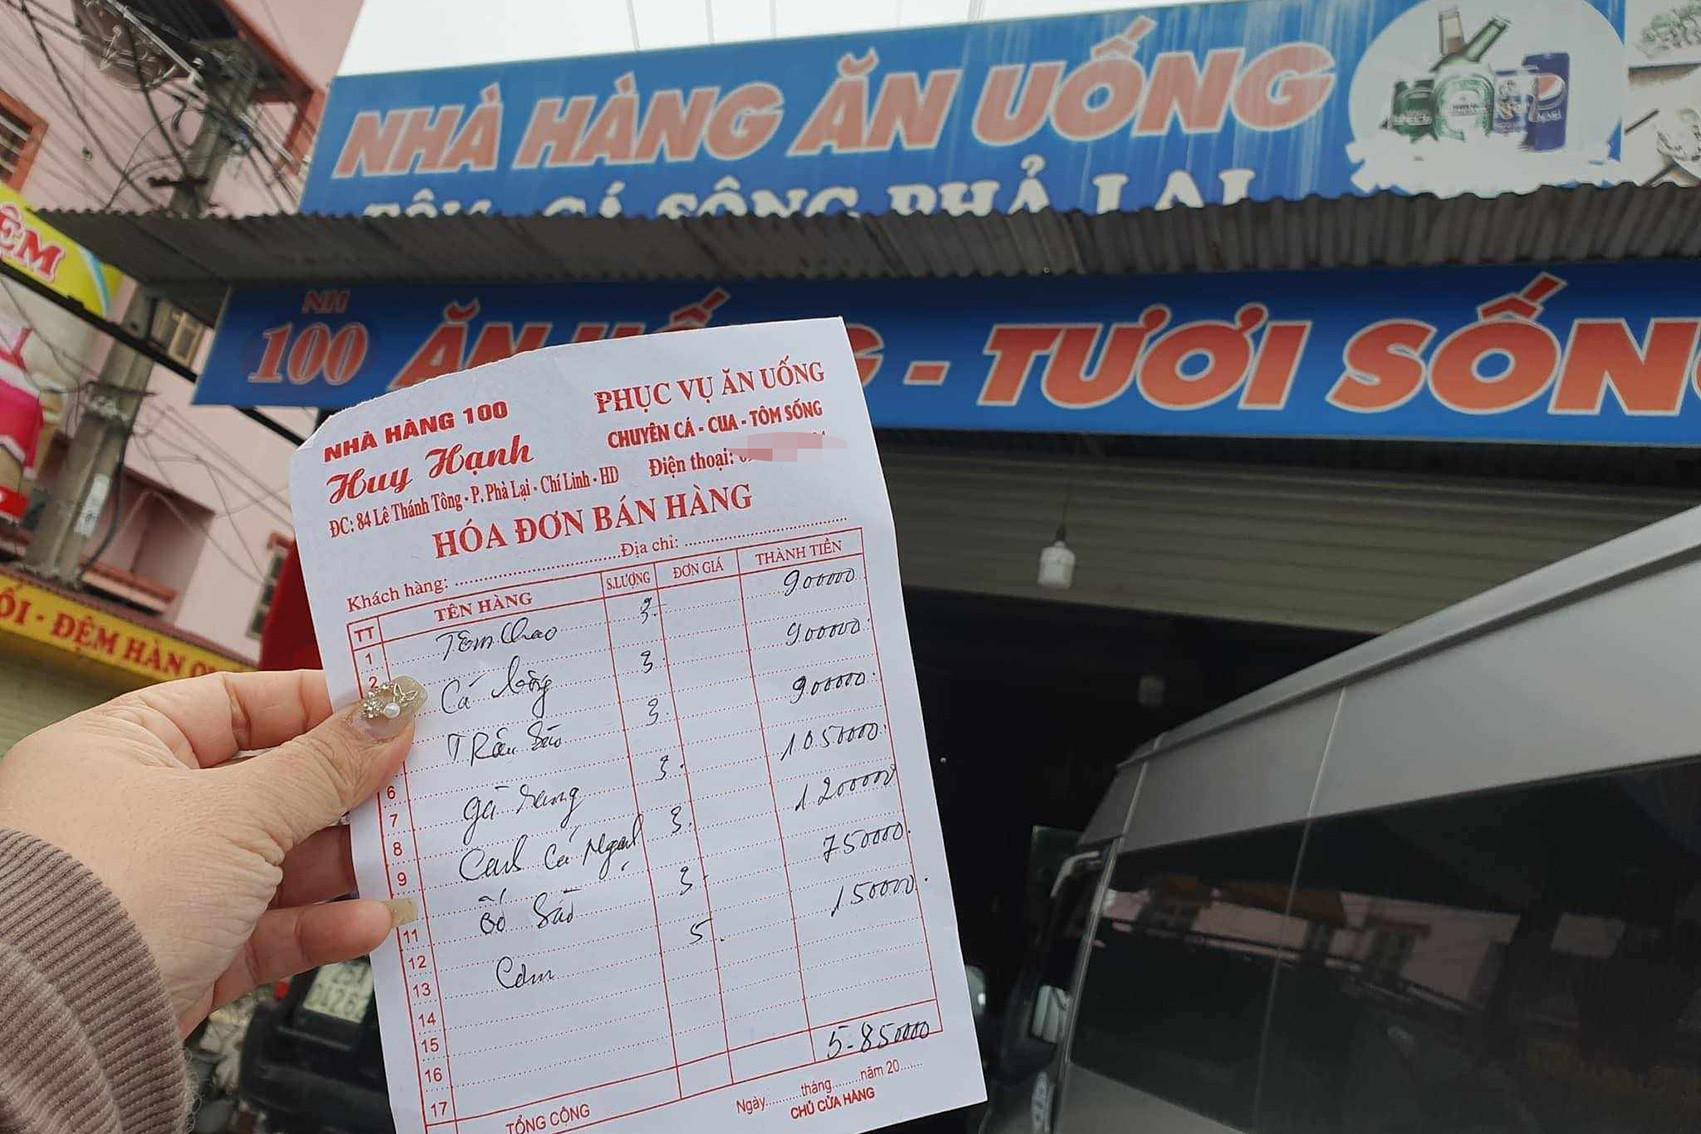 NHÀ HÀNG ĂN UỐNG
TÔM - CÁ SÔNG PHẢ LẠI
ỆM
NH
100 ĂN UỐNG - TƯƠI SỐNG
ỔI - ĐỆM HÀN QU
NHÀ HÀNG 100
Huy Hạnh
PHỤC VỤ ĂN UỐNG
CHUYÊN CÁ - CUA - TÔM SỐNG
ĐC: 84 Lê Thánh Tông - P. Phả Lại - Chí Linh - HD Điện thoại:
HÓA ĐƠN BÁN HÀNG
Khách hàng: Địa chỉ:
TT TÊN HÀNG S.LƯỢNG ĐƠN GIÁ THÀNH TIỀN
1 Tôm Chao 3 900000
2 Cá 3 900000
Trâu Sào 3 900000
6
7 gà rang 3 1050000
8
9 Canh Cá Ngạnh 3 1200000
11 Bò Sào 3 750000
12
13 Cơm 5 150000
14
15
16
17 5.850000
TỔNG CỘNG
Ngày tháng năm 20
CHỦ CỬA HÀNG